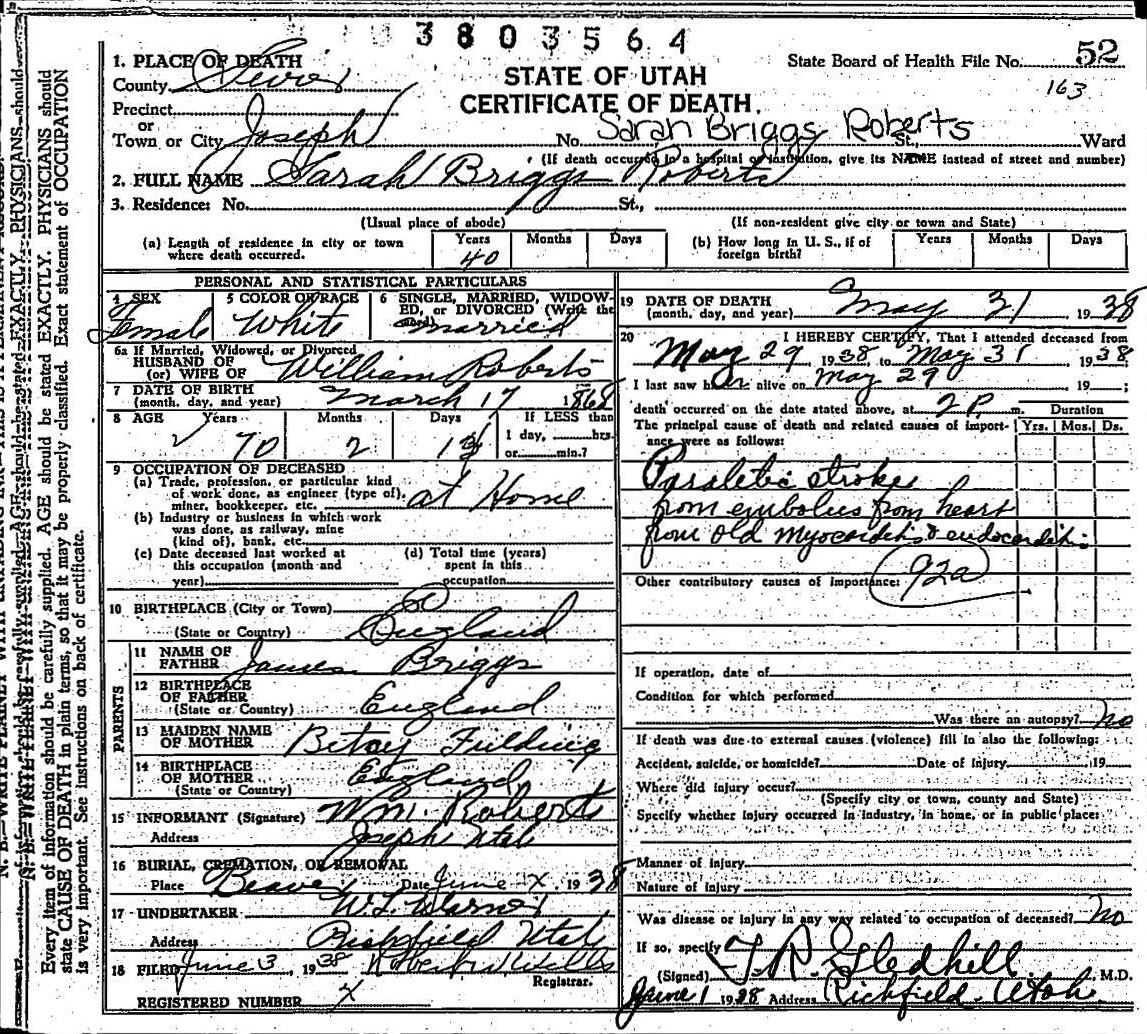 3803564
1. PLACE OF DEATH
County Sevier
STATE OF UTAH
CERTIFICATE OF DEATH
State Board of Health File No. 52
163
Precinct
or
Town or City Joseph No. Sarah Briggs Roberts St., Ward
(If death occurred in a hospital or institution, give its NAME instead of street and number)
2. FULL NAME Sarah Briggs Roberts
3. Residence: No. St.,
(Usual place of abode) (If non-resident give city or town and State)
(a) Length of residence in city or town where death occurred. Years 40 Months Days
(b) How long in U. S., if of foreign birth? Years Months Days
PERSONAL AND STATISTICAL PARTICULARS
4 SEX Female
5 COLOR OR RACE White
6 SINGLE, MARRIED, WIDOWED, or DIVORCED (Write the word) married
6a If Married, Widowed, or Divorced
HUSBAND OF
(or) WIFE OF William Roberts
7 DATE OF BIRTH
(month, day, and year) March 17 1868
8 AGE Years 70 Months 2 Days If LESS than
1 day, hrs.
or min.?
9 OCCUPATION OF DECEASED
(a) Trade, profession, or particular kind
of work done, as engineer (type of),
miner, bookkeeper, etc. at Home
(b) Industry or business in which work
was done, as railway, mine
(kind of), bank, etc.
(c) Date deceased last worked at
this occupation (month and
year)
(d) Total time (years)
spent in this
occupation
10 BIRTHPLACE (City or Town)
(State or Country) England
PARENTS
11 NAME OF
FATHER James Briggs
12 BIRTHPLACE
OF FATHER
(State or Country) England
13 MAIDEN NAME
OF MOTHER Betsy Fielding
14 BIRTHPLACE
OF MOTHER
(State or Country) England
15 INFORMANT (Signature) Wm. Roberts
Address Joseph Utah
16 BURIAL, CREMATION, OR REMOVAL
Place Beaver Date June 1938
17 UNDERTAKER
Address Richfield Utah
18 FILED June 3, 1938
Registrar.
REGISTERED NUMBER
19 DATE OF DEATH
(month, day, and year) May 31 1938
20 I HEREBY CERTIFY, That I attended deceased from
May 29, 1938, to May 31 1938
I last saw her alive on May 29 19 ;
death occurred on the date stated above, at 2 P. m. Duration
The principal cause of death and related causes of importance were as follows: Yrs. Mos. Ds.
Paraletic stroke
from embolus from heart
from old myocarditis & endocarditis
Other contributory causes of importance: 92a
If operation, date of
Condition for which performed
Was there an autopsy? no
If death was due to external causes (violence) fill in also the following:
Accident, suicide, or homicide? Date of injury 19
Where did injury occur?
(Specify city or town, county and State)
Specify whether injury occurred in industry, in home, or in public place:
Manner of injury
Nature of injury
Was disease or injury in any way related to occupation of deceased? no
If so, specify
(Signed) T. R. Gledhill M.D.
June 1 1938 Address Richfield Utah
Every item of information should be carefully supplied. AGE should be stated EXACTLY. PHYSICIANS should
state CAUSE OF DEATH in plain terms, so that it may be properly classified. Exact statement of OCCUPATION
is very important. See instructions on back of certificate.